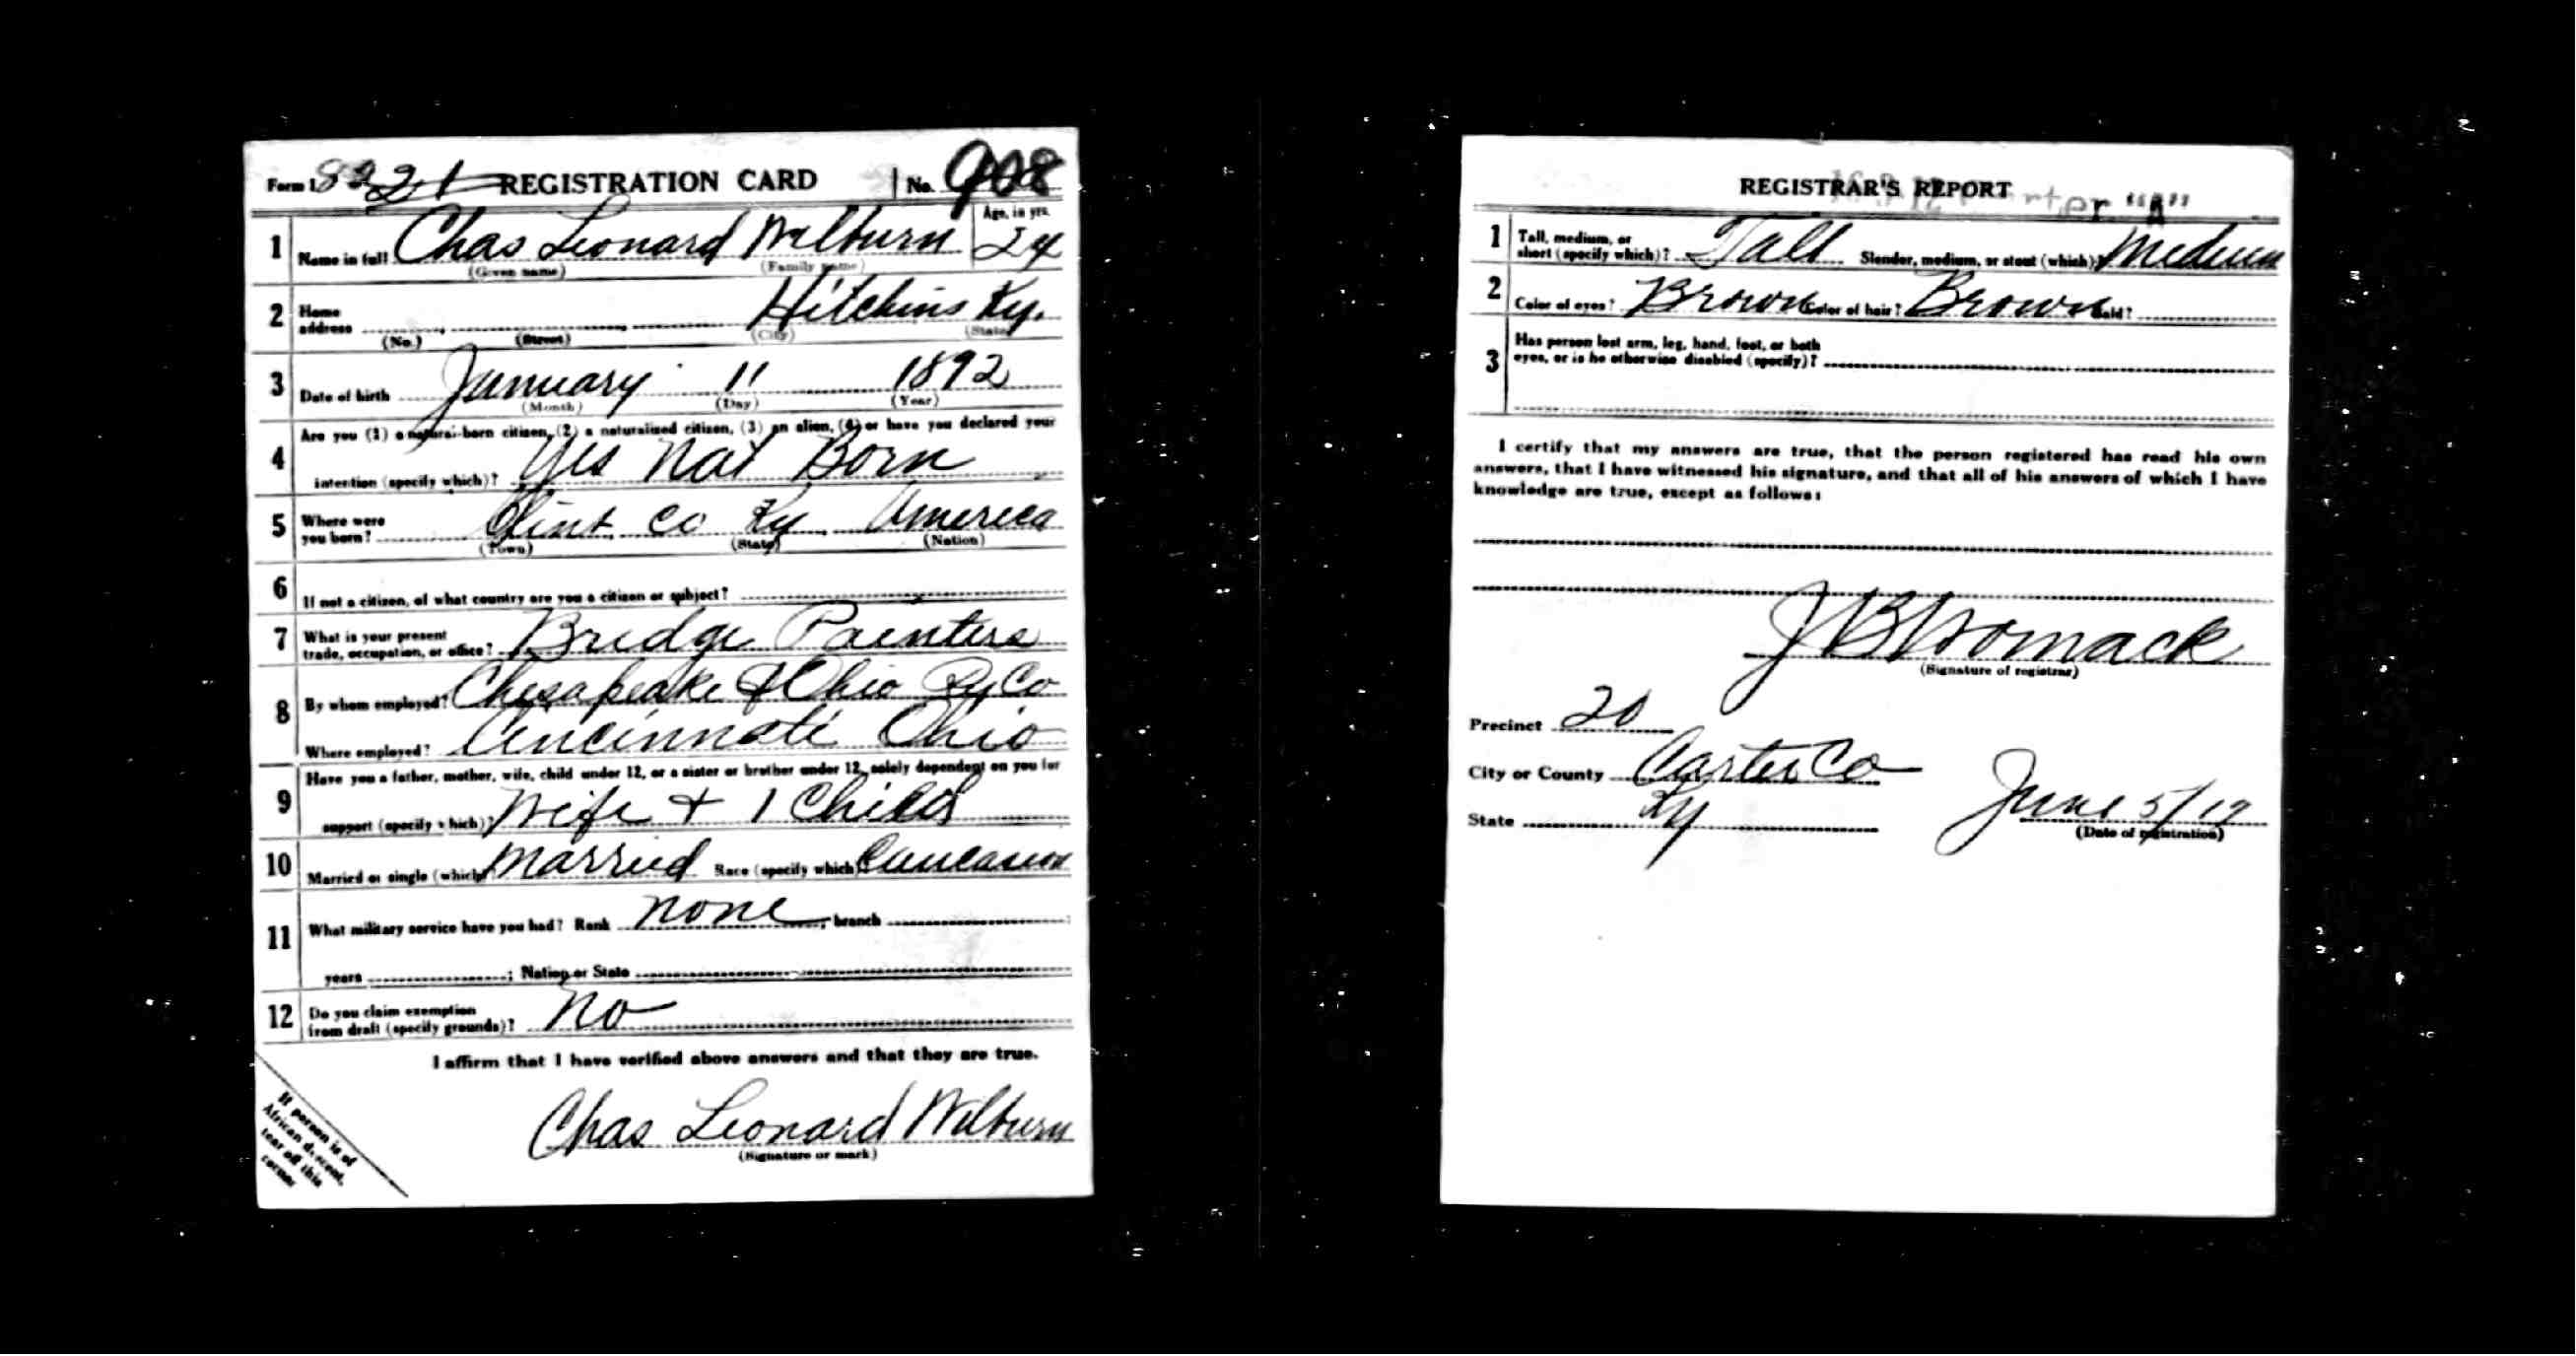 Form 1 8221 REGISTRATION CARD No. 908
1 Name in full Chas Leonard Wilburn Age, in yrs. 24
(Given name) (Family name)
2 Home address Hitchins Ky.
(No.) (Street) (City) (State)
3 Date of birth January 11 1892
(Month) (Day) (Year)
4 Are you (1) a natural-born citizen, (2) a naturalized citizen, (3) an alien, (4) or have you declared your
intention (specify which)? Yes Nat Born
5 Where were you born? Clint Co Ky America
(Town) (State) (Nation)
6 If not a citizen, of what country are you a citizen or subject?
7 What is your present trade, occupation, or office? Bridge Painters
8 By whom employed? Chesapeake & Ohio Ry Co
Where employed? Cincinnati Ohio
9 Have you a father, mother, wife, child under 12, or a sister or brother under 12, solely dependent on you for
support (specify which)? Wife + 1 Child
10 Married or single (which)? Married Race (specify which)? Caucasion
11 What military service have you had? Rank none ; branch ;
years ; Nation or State
12 Do you claim exemption from draft (specify grounds)? No
I affirm that I have verified above answers and that they are true.
Chas Leonard Wilburn
(Signature or mark)
If person is of
African descent,
tear off this
corner
REGISTRAR'S REPORT
"A"
1 Tall, medium, or short (specify which)? Tall Slender, medium, or stout (which)? Medium
2 Color of eyes? Brown Color of hair? Brown Bald?
3 Has person lost arm, leg, hand, foot, or both
eyes, or is he otherwise disabled (specify)?
I certify that my answers are true, that the person registered has read his own
answers, that I have witnessed his signature, and that all of his answers of which I have
knowledge are true, except as follows:
J B Womack
(Signature of registrar)
Precinct 20
City or County Carter Co
State Ky June 5/17
(Date of registration)